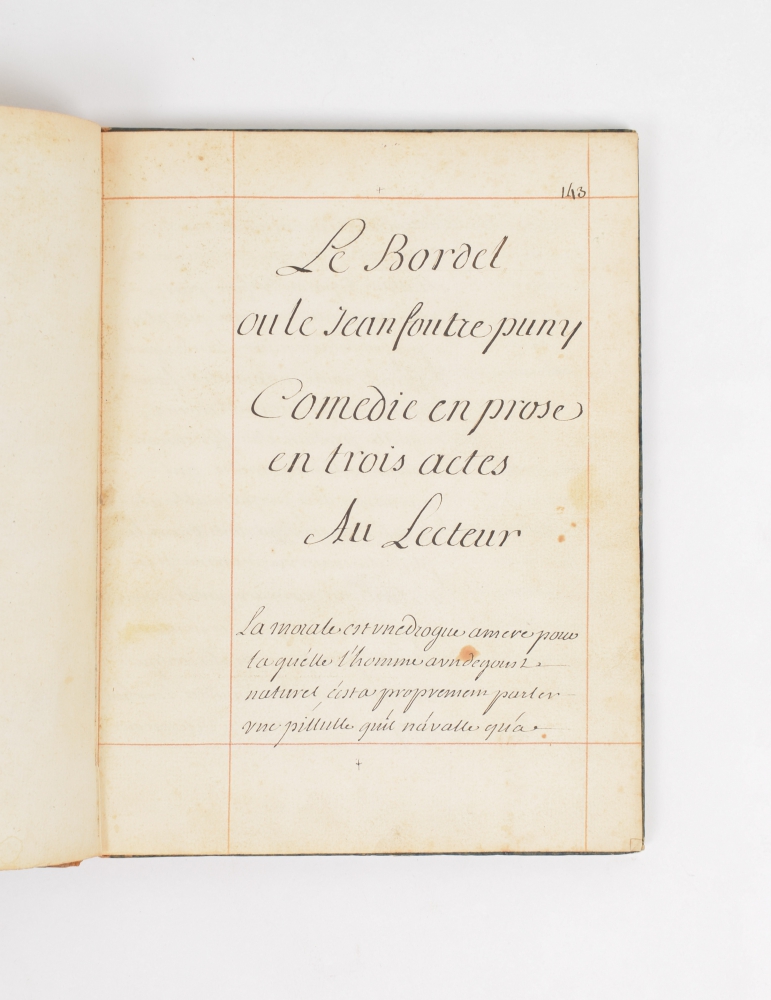 143
Le Bordel
ou le Jeanfoutre puny
Comedie en prose
en trois actes
Au Lecteur
La morale est une drogue amere pour
laquelle l'homme a un degoust
naturel, c'est a proprement parler
une pillulle qu'il n'avalle qu'a